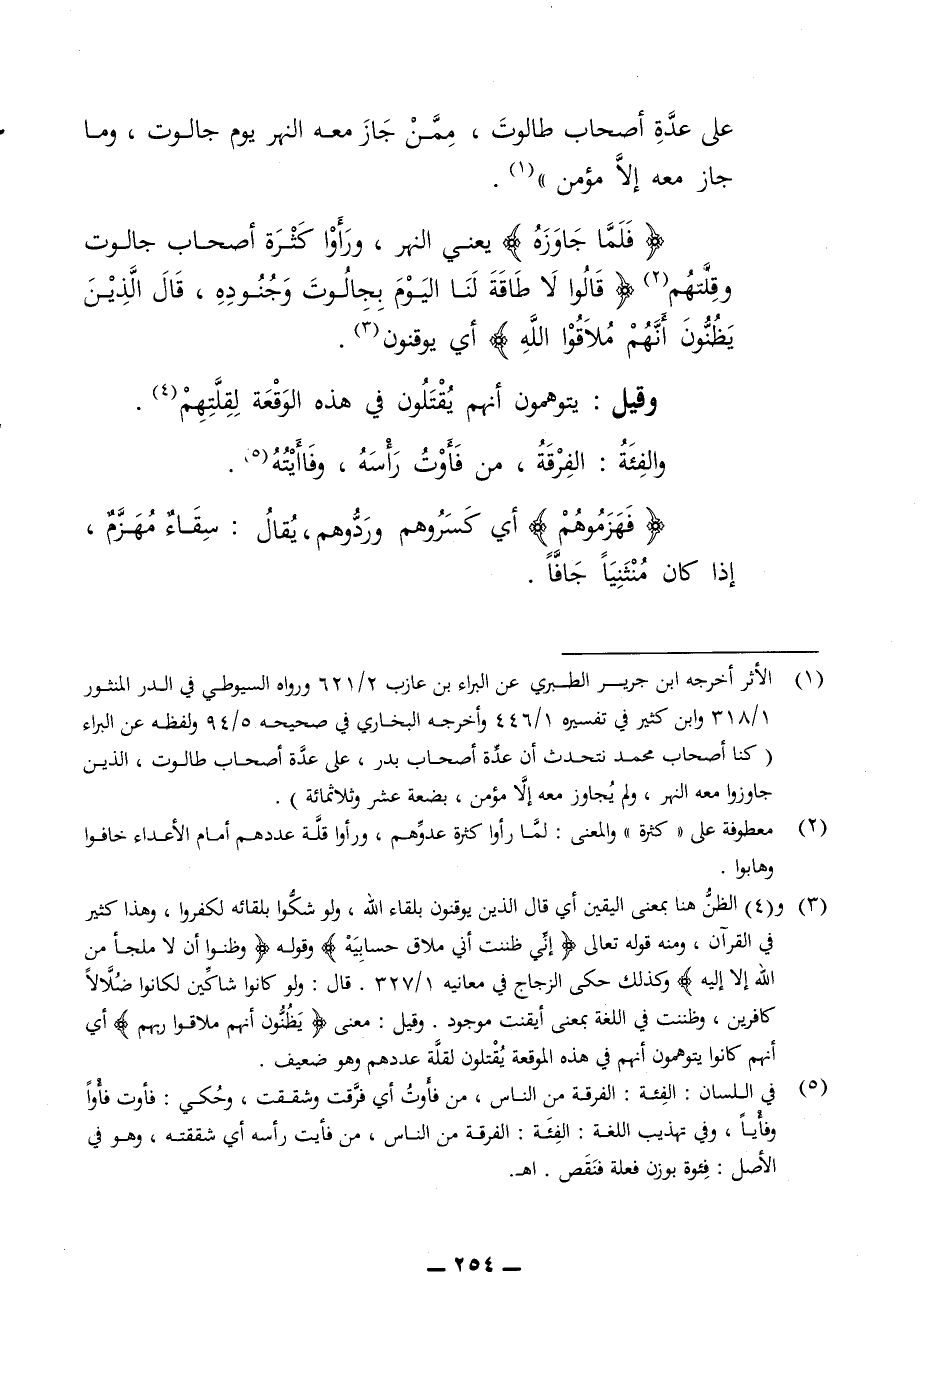 على عدَّةِ أصحاب طالوتَ ، مِمَّنْ جَازَ معه النهر يوم جالوت ، وما
جاز معه إلاَّ مؤمن »(١) .
﴿ فَلَمَّا جَاوَزَهُ ﴾ يعني النهر ، ورَأَوْا كَثْرَة أصحاب جالوت
وقِلَّتهُم(٢) ﴿ قَالُوا لَا طَاقَةَ لَنَا اليَوْمَ بِجِالُوتَ وَجُنُودِهِ ، قَالَ الَّذِيْنَ
يَظُنُّونَ أَنَّهُمْ مُلاَقُوْا اللَّهِ ﴾ أي يوقنون(٣) .
وقيل : يتوهمون أنهم يُقْتَلُون في هذه الوَقْعَة لِقِلَّتِهِمْ(٤) .
والفِئَةُ : الفِرْقَةُ ، من فَأَوْتُ رَأْسَهُ ، وفَاأَيْتُهُ(٥) .
﴿ فَهَزَمُوهُمْ ﴾ أي كَسَرُوهم ورَدُّوهم، يُقالُ : سِقَاءٌ مُهَزَّمٌ ،
إذا كان مُنْثَنِيَاً جَافَّاً .
(١) الأثر أخرجه ابن جرير الطبري عن البراء بن عازب ٦٢١/٢ ورواه السيوطي في الدر المنثور
٣١٨/١ وابن كثير في تفسيره ٤٤٦/١ وأخرجه البخاري في صحيحه ٩٤/٥ ولفظه عن البراء
( كنا أصحاب محمد نتحدث أن عدَّة أصحاب بدر ، على عدَّة أصحاب طالوت ، الذين
جاوزوا معه النهر ، ولم يُجاوز معه إلَّا مؤمن ، بضعة عشر وثلاثمائة ) .
(٢) معطوفة على « كثرة » والمعنى : لمَّا رأوا كثرة عدوِّهم ، ورأوا قلَّة عددهم أمام الأعداء خافوا
وهابوا .
(٣) و(٤) الظنُّ هنا بمعنى اليقين أي قال الذين يوقنون بلقاء الله ، ولو شكُّوا بلقائه لكفروا ، وهذا كثير
في القرآن ، ومنه قوله تعالى ﴿ إنِّي ظننت أني ملاق حسابِيَهْ ﴾ وقوله ﴿ وظنوا أن لا ملجأ من
الله إلا إليه ﴾ وكذلك حكى الزجاج في معانيه ٣٢٧/١ . قال : ولو كانوا شاكِّين لكانوا ضُلَّالاً
كافرين ، وظننت في اللغة بمعنى أيقنت موجود . وقيل : معنى ﴿ يَظُنُّون أنهم ملاقوا ربهم ﴾ أي
أنهم كانوا يتوهمون أنهم في هذه الموقعة يُقْتلون لقلَّة عددهم وهو ضعيف .
(٥) في اللسان : الفِئة : الفرقة من الناس ، من فأَوتُ أي فرَّقت وشققت ، وحُكي : فأوت فأْواً
وفأْياً ، وفي تهذيب اللغة : الفِئَة : الفرقة من الناس ، من فأيت رأسه أي شققته ، وهو في
الأصل : فِئوة بوزن فعلة فنَقَص . اهـ.
ــ ٢٥٤ ــ